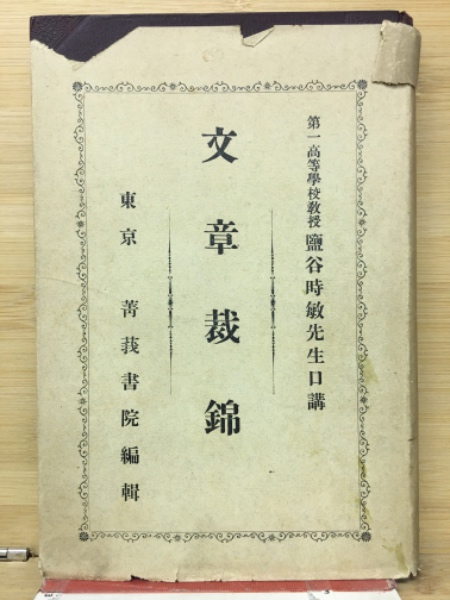 第一高等學校教授 鹽谷時敏先生口講
文章裁錦
東京 菁莪書院編輯